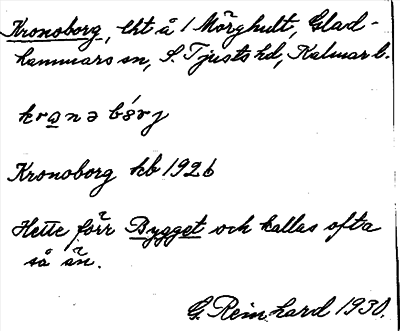 Kronoborg, lht å 1 Mörghult, Glad-
hammars sn, S. Tjusts hd, Kalmar l.
Kronoborg kb 1926
Hette förr Bygget och kallas ofta
så än.
G. Reinhard 1930.